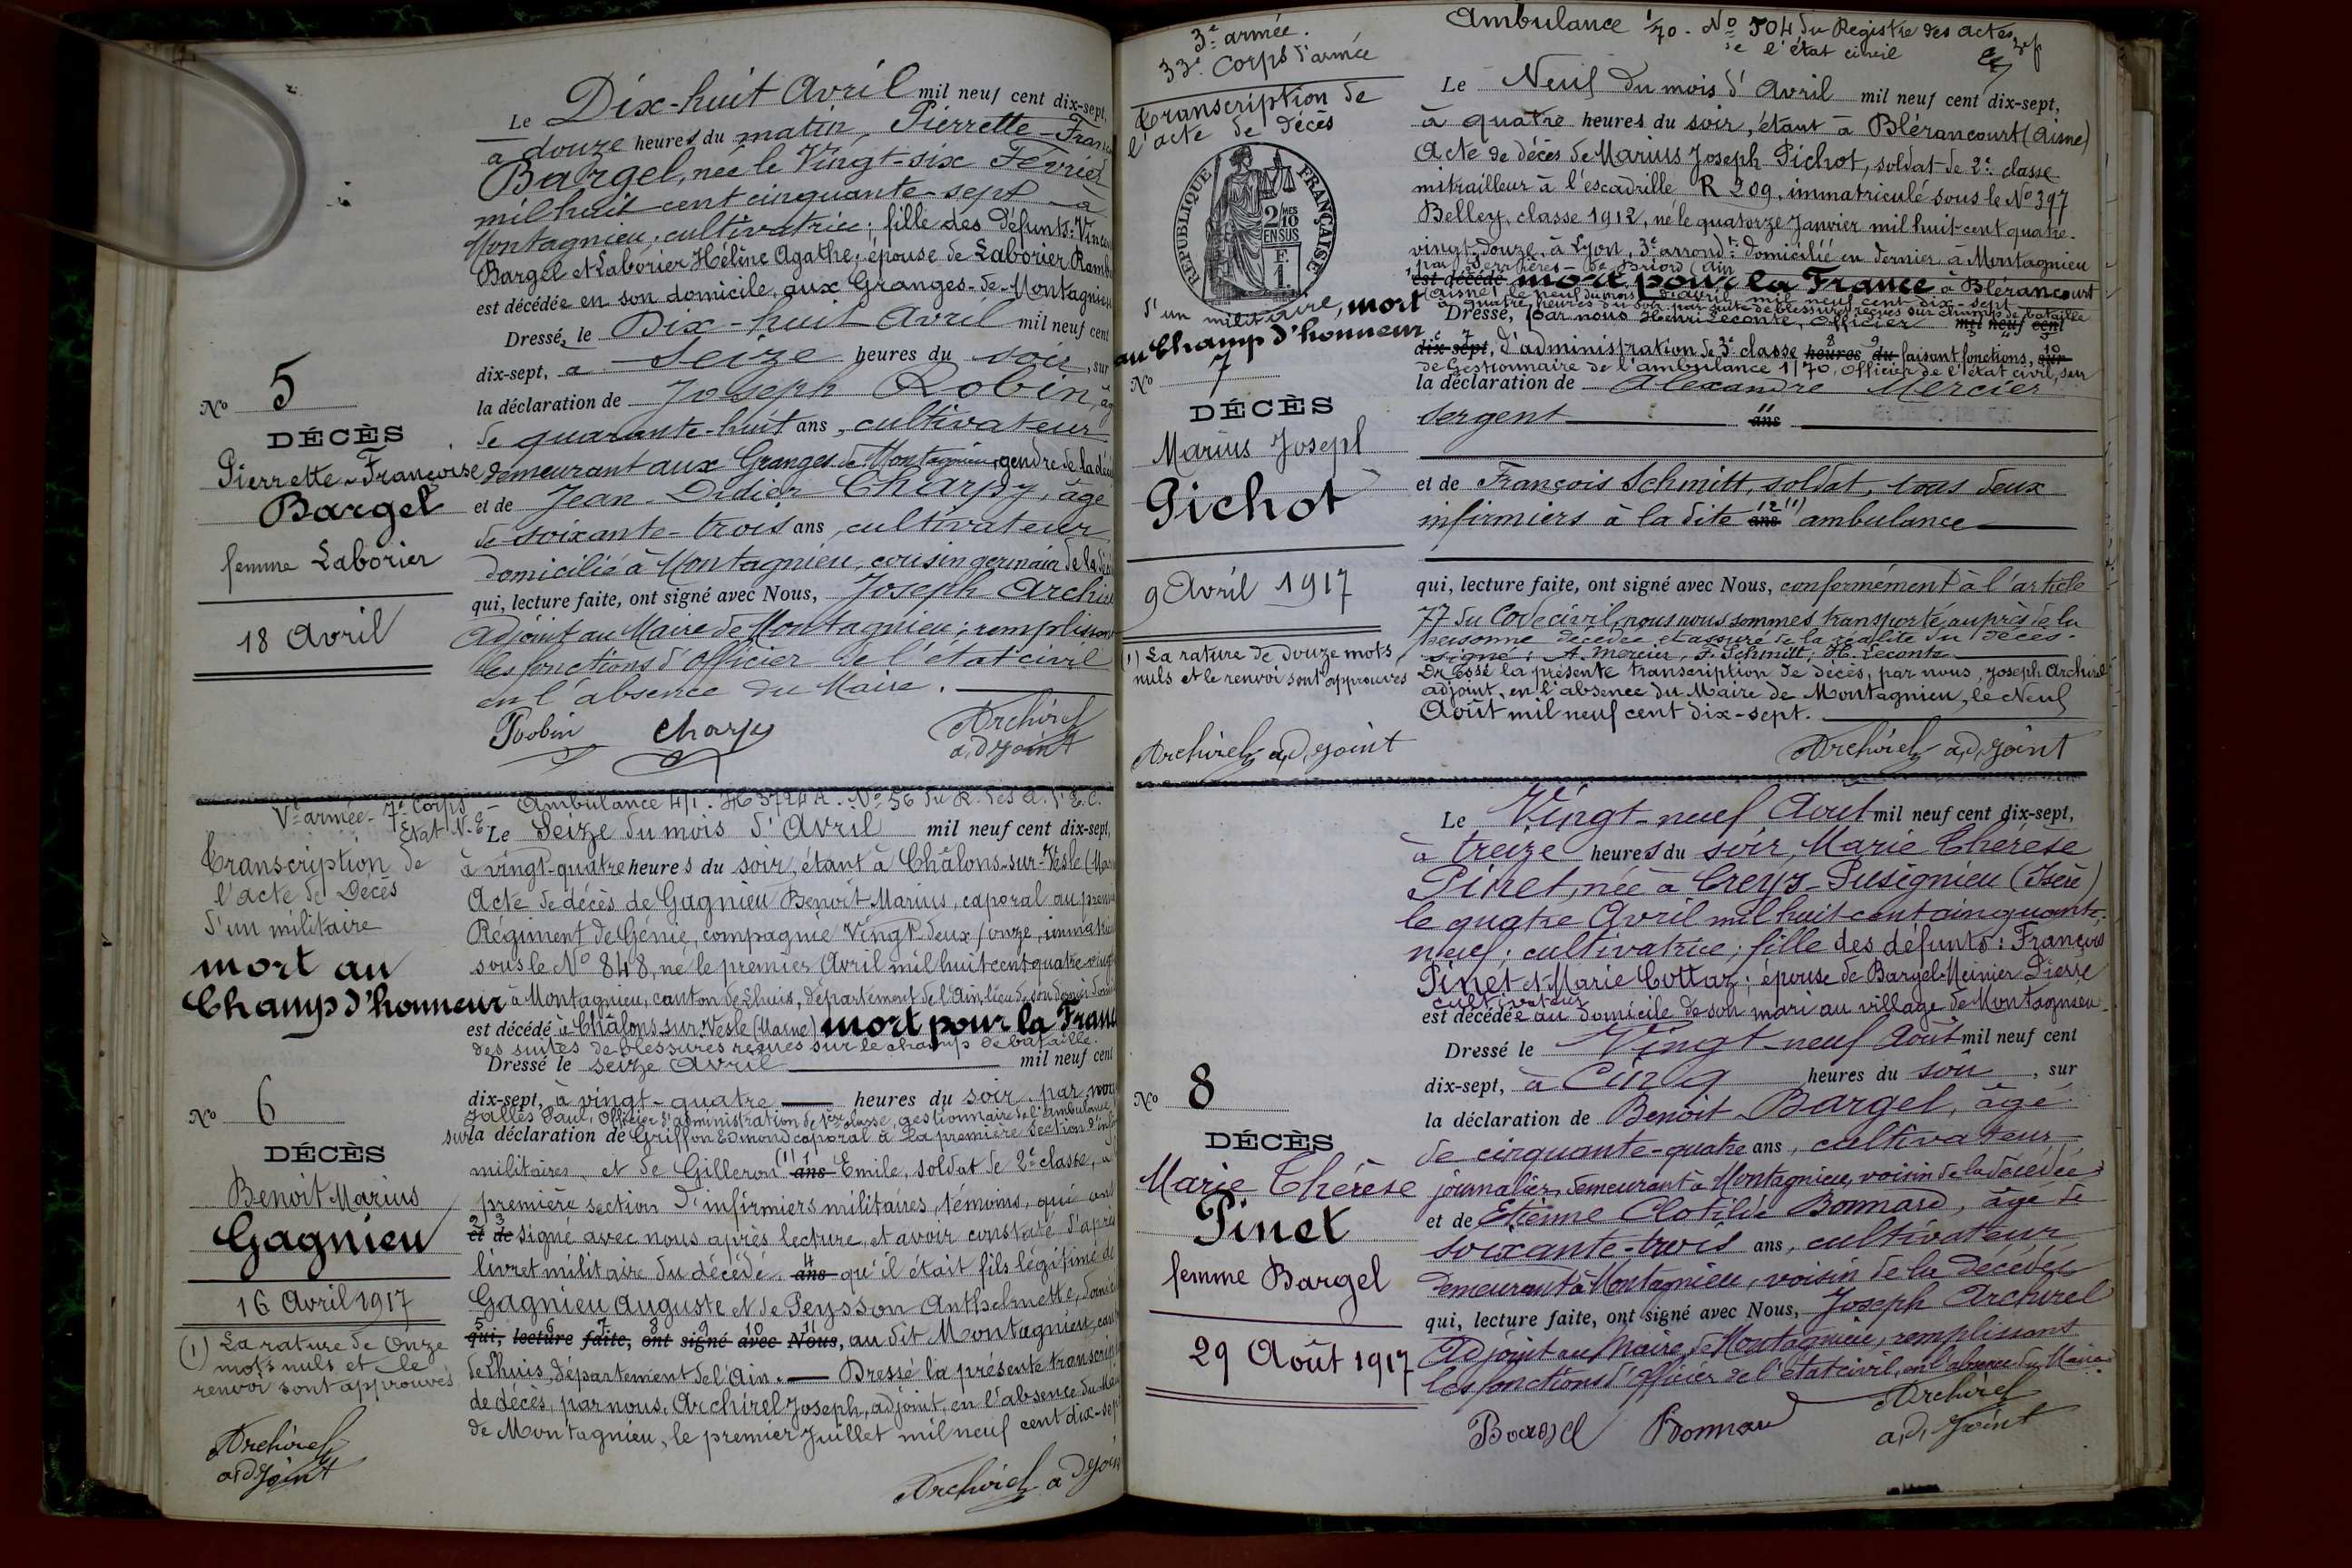 Le Dix-huit Avril mil neuf cent dix-sept,
à douze heures du matin, Pierrette-Fran
Bargel, née le Vingt-six Février
mil huit cent cinquante-sept à
Montagnieu, cultivatrice; fille des défunts: Vince
Bargel et Laborier Hélène Agathe; épouse de Laborier Ramb
est décédée en son domicile, aux Granges-de-Montagnieu
Dressé, le Dix-huit Avril mil neuf cent
dix-sept, à Seize heures du soir, sur
la déclaration de Joseph Robin, âg
de quarante-huit ans, cultivateur
demeurant aux Granges de Montagnieu, gendre de la décé
et de Jean-Didier Charpy, âgé
de soixante-trois ans, cultivateur
domicilié à Montagnieu, cousin germain de la déc
qui, lecture faite, ont signé avec Nous, Joseph Archir
adjoint au Maire de Montagnieu; remplissant
les fonctions d'Officier de l'état civil
en l'absence du Maire.
Robin Charpy Archirel
adjoint
No 5
DÉCÈS
Pierrette-Françoise
Bargel
femme Laborier
18 Avril
Ve armée - 7e Corps - Ambulance 4/1. No 56 du R. des A. d'E. C.
Etat N.E.
Transcription de
l'acte de Décès
d'un militaire
mort au
Champ d'honneur
No 6
DÉCÈS
Benoit Marius
Gagnieu
16 Avril 1917
(1) La rature de Onze
mots nuls et le
renvoi sont approuvés
Archirel
adjoint
Le Seize du mois d'Avril mil neuf cent dix-sept,
à vingt-quatre heures du soir, étant à Châlons-sur-Vesle (Mar
Acte de décès de Gagnieu Benoit Marius, caporal au premi
Régiment de Génie, compagnie Vingt deux/onze, immatri
sous le No 848, né le premier Avril mil huit cent quatre-vingt
à Montagnieu, canton de Lhuis, département de l'Ain, lieu de son dernier domi
est décédé à Châlons-sur-Vesle (Marne) mort pour la Franc
des suites de blessures reçues sur le champ de bataille.
Dressé le seize Avril mil neuf cent
dix-sept, à vingt-quatre heures du soir par nous
Jallès Paul, Officier d'administration de 1re classe, gestionnaire de l'ambulance
sur la déclaration de Griffon Edmond caporal à la première Section d'inf
militaires et de Gilleron (1) ans Emile, soldat de 2e classe, à
première section d'infirmiers militaires, témoins, qui ont
et de signé avec nous après lecture, et avoir constaté d'après
livret militaire du décédé ans qu'il était fils légitime de
Gagnieu Auguste et de Peysson Anthelmette, domici
qui, lecture faite, ont signé avec Nous, au dit Montagnieu, cant
de Lhuis, département de l'Ain. Dressé la présente transcrip
de décès, par nous, Archirel Joseph, adjoint, en l'absence du Mai
de Montagnieu, le premier Juillet mil neuf cent dix-sep
Archirel adjoin
3e armée.
33e Corps d'armée
Transcription de
l'acte de décès
RÉPUBLIQUE FRANÇAISE
2/10 MES
EN SUS
F.
1
d'un militaire, mort
au Champ d'honneur
No 7
DÉCÈS
Marius Josepl
Pichot
9 Avril 1917
(1) La rature de douze mots
nuls et le renvoi sont approuvés
Archirel adjoint
Ambulance 1/70. No 504 du Registre des actes
de l'état civil
Le Neuf du mois d'Avril mil neuf cent dix-sept,
à quatre heures du soir, étant à Blérancourt (Aisne)
Acte de décès de Marius Joseph Pichot, soldat de 2e classe
mitrailleur à l'escadrille R 209, immatriculé sous le No 397
Belley, classe 1912, né le quatorze Janvier mil huit cent quatre-
vingt-douze, à Lyon, 3e arrondt. domicilié en dernier à Montagnieu
par Serrières-de-Briord (Ain
est décédé mort pour la France à Blérancourt
(Aisne) le neuf du mois d'avril mil neuf cent dix-sept
à quatre heures du soir par suite de blessures reçues sur champ de bataille
Dressé, par nous Henri Leconte, Officier mil neuf cent
dix-sept, d'administration de 3e classe heures du faisant fonctions, sur
de Gestionnaire de l'ambulance 1/70, Officier de l'état civil, sur
la déclaration de Alexandre Mercier
Sergent ans
et de François Schmitt, soldat, tous deux
infirmiers à la dite ans (1) ambulance
qui, lecture faite, ont signé avec Nous, conformément à l'article
77 du Code civil, nous nous sommes transporté auprès de la
personne décédée et assuré de la réalité du décès.
signé: A. Mercier, F. Schmitt, H. Leconte
Dressé la présente transcription de décès, par nous, Joseph Archirel
adjoint, en l'absence du Maire de Montagnieu, le Neuf
Août mil neuf cent dix-sept.
Archirel adjoint
No 8
DÉCÈS
Marie Thérèse
Pinet
femme Bargel
29 Août 1917
Le Vingt-neuf Août mil neuf cent dix-sept,
à treize heures du soir, Marie Thérèse
Pinet, née à Creys-Pusignieu (Isère)
le quatre Avril mil huit cent cinquante-
neuf; cultivatrice; fille des défunts: François
Pinet et Marie Cottaz; épouse de Bargel-Meinier Pierre
cultivateur
est décédée au domicile de son mari au village de Montagnieu.
Dressé le Vingt-neuf Août mil neuf cent
dix-sept, à Cinq heures du soir, sur
la déclaration de Benoit Bargel, âgé
de cinquante-quatre ans, cultivateur
journalier, demeurant à Montagnieu, voisin de la décédée
et de Etienne Clotilde Bonnard, âgé de
soixante-trois ans, cultivateur
demeurant à Montagnieu, voisin de la décédée
qui, lecture faite, ont signé avec Nous, Joseph Archirel
Adjoint au Maire de Montagnieu, remplissant
les fonctions d'Officier de l'état civil, en l'absence du Maire
Bargel Bonnard Archirel
adjoint